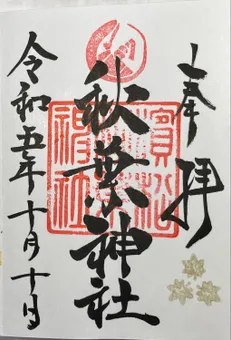 奉拝
秋葉神社
濱松
神社
令和五年十月十日